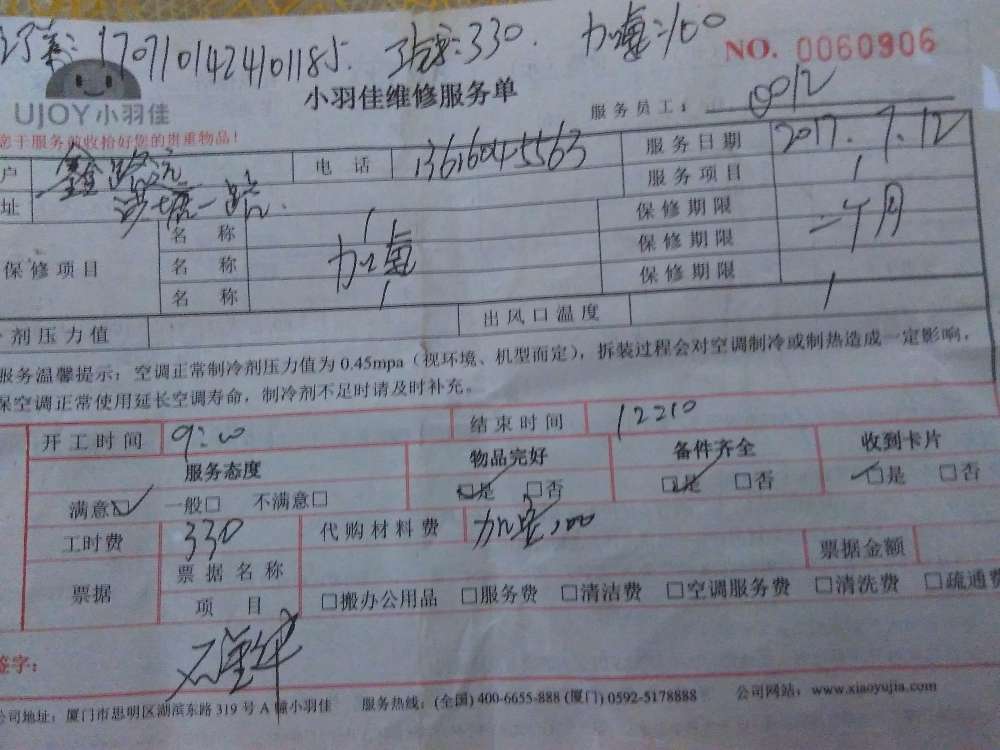 1707101424101185. 330. 加氟:100
NO. 0060906
UJOY小羽佳
小羽佳维修服务单
服务员工: 0012
您于服务前收拾好您的贵重物品!
户 电话 13616045563 服务日期 2017.7.12
址 一路. 服务项目 1
保修项目 名称 1 保修期限
名称 加氟 保修期限 一个月
名称 1 保修期限
剂压力值 出风口温度 1
服务温馨提示: 空调正常制冷剂压力值为 0.45mpa (视环境、机型而定), 拆装过程会对空调制冷或制热造成一定影响,
保空调正常使用延长空调寿命, 制冷剂不足时请及时补充。
开工时间 9:00 结束时间 12210
服务态度 物品完好 备件齐全 收到卡片
满意☑ 一般□ 不满意□ ☑是 □否 ☑是 □否 ☑是 □否
工时费 330 代购材料费 加氟100
票据 票据名称 票据金额
项目 □搬办公用品 □服务费 □清洁费 □空调服务费 □清洗费 □疏通费
签字:
公司地址: 厦门市思明区湖滨东路 319 号 A 幢小羽佳 服务热线: (全国) 400-6655-888 (厦门) 0592-5178888 公司网站: www.xiaoyujia.com